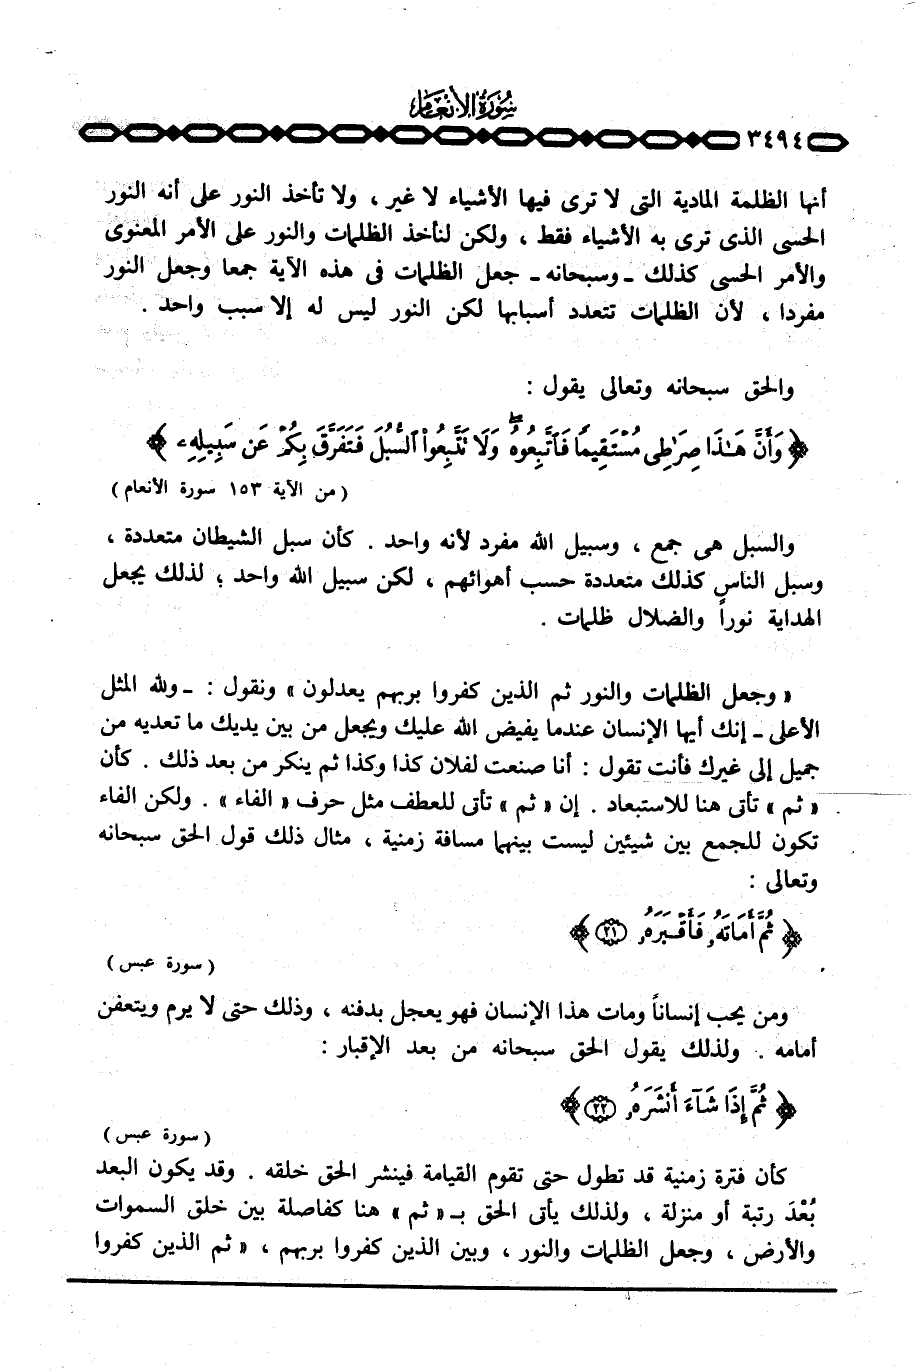 سورة الأنعام
٣٤٩٤
أنها الظلمة المادية التى لا ترى فيها الأشياء لا غير ، ولا تأخذ النور على أنه النور
الحسى الذى ترى به الأشياء فقط ، ولكن لنأخذ الظلمات والنور على الأمر المعنوى
والأمر الحسى كذلك ـ وسبحانه ـ جعل الظلمات فى هذه الآية جمعا وجعل النور
مفردا ، لأن الظلمات تتعدد أسبابها لكن النور ليس له إلا سبب واحد .
والحق سبحانه وتعالى يقول :
﴿ وَأَنَّ هَـٰذَا صِرَٰطِى مُسْتَقِيمًا فَٱتَّبِعُوهُ ۖ وَلَا تَتَّبِعُوا۟ ٱلسُّبُلَ فَتَفَرَّقَ بِكُمْ عَن سَبِيلِهِۦ ﴾
( من الآية ١٥٣ سورة الأنعام )
والسبل هى جمع ، وسبيل الله مفرد لأنه واحد . كأن سبل الشيطان متعددة ،
وسبل الناس كذلك متعددة حسب أهوائهم ، لكن سبيل الله واحد ؛ لذلك يجعل
الهداية نوراً والضلال ظلمات .
« وجعل الظلمات والنور ثم الذين كفروا بربهم يعدلون » ونقول : ـ ولله المثل
الأعلى ـ إنك أيها الإنسان عندما يفيض الله عليك ويجعل من بين يديك ما تعديه من
جميل إلى غيرك فأنت تقول : أنا صنعت لفلان كذا وكذا ثم ينكر من بعد ذلك . كأن
« ثم » تأتى هنا للاستبعاد . إن « ثم » تأتى للعطف مثل حرف « الفاء » . ولكن الفاء
تكون للجمع بين شيئين ليست بينهما مسافة زمنية ، مثال ذلك قول الحق سبحانه
وتعالى :
﴿ ثُمَّ أَمَاتَهُۥ فَأَقْبَرَهُۥ ۝٢١ ﴾
( سورة عبس )
ومن يحب إنساناً ومات هذا الإنسان فهو يعجل بدفنه ، وذلك حتى لا يرم ويتعفن
أمامه . ولذلك يقول الحق سبحانه من بعد الإقبار :
﴿ ثُمَّ إِذَا شَآءَ أَنشَرَهُۥ ۝٢٢ ﴾
( سورة عبس )
كأن فترة زمنية قد تطول حتى تقوم القيامة فينشر الحق خلقه . وقد يكون البعد
بُعْدَ رتبة أو منزلة ، ولذلك يأتى الحق بـ « ثم » هنا كفاصلة بين خلق السموات
والأرض ، وجعل الظلمات والنور ، وبين الذين كفروا بربهم ، « ثم الذين كفروا